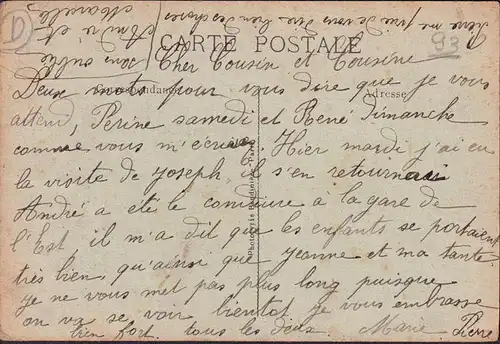 D
93
CARTE POSTALE
Correspondance
Adresse
Cher Cousin et Cousine
Deux mots pour vous dire que je vous
attend, Perine samedi et René Dimanche
comme vous m'ecrivez. Hier mardi j'ai eu
la visite de Joseph, il s'en retournait
André a eté le conduire à la gare de
l'Est il m'a dit que les enfants se portaient
très bien, qu'ainsi que Jeanne et ma tante
Je ne vous met pas plus long puisque
on va se voir bientot je vous embrasse
bien fort. tous les deux. Marie
Pierre
Pierre me prie de vous dire bien des choses
sans oublié
André et
Marcelle